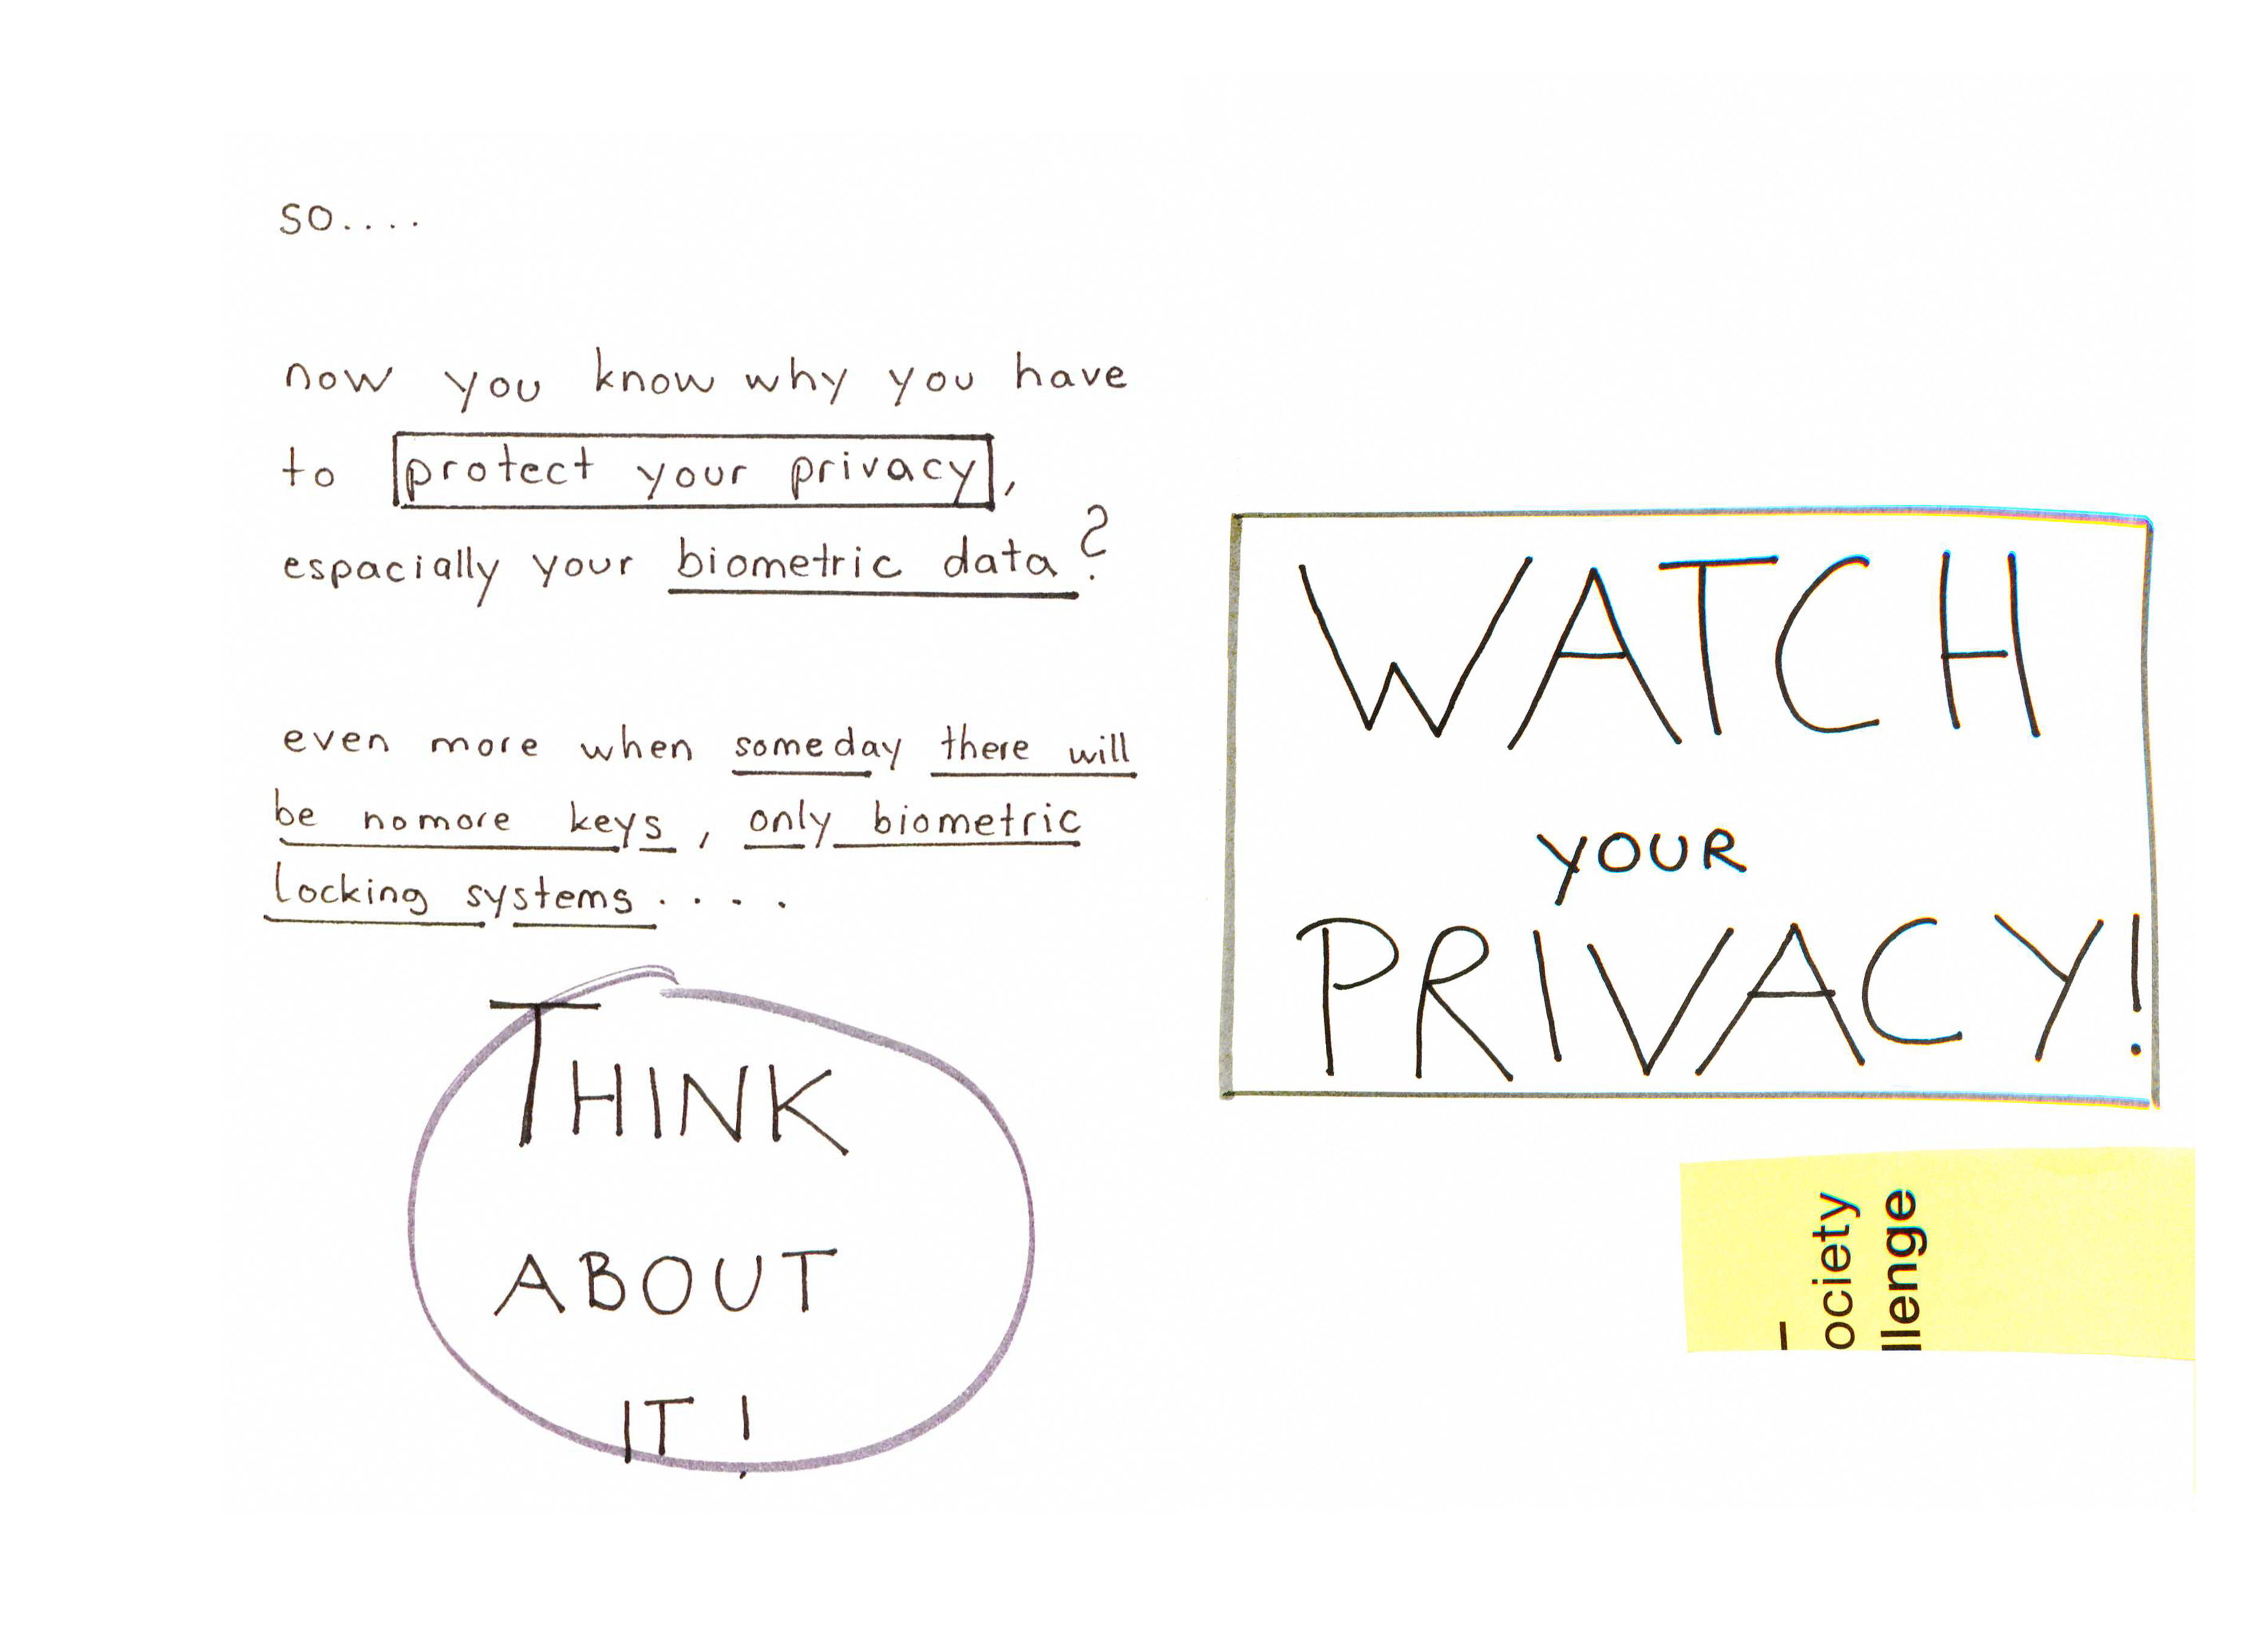 so....
now you know why you have
to protect your privacy,
espacially your biometric data?
even more when someday there will
be nomore keys, only biometric
locking systems....
THINK
ABOUT
IT!
WATCH
YOUR
PRIVACY!
ociety
llenge